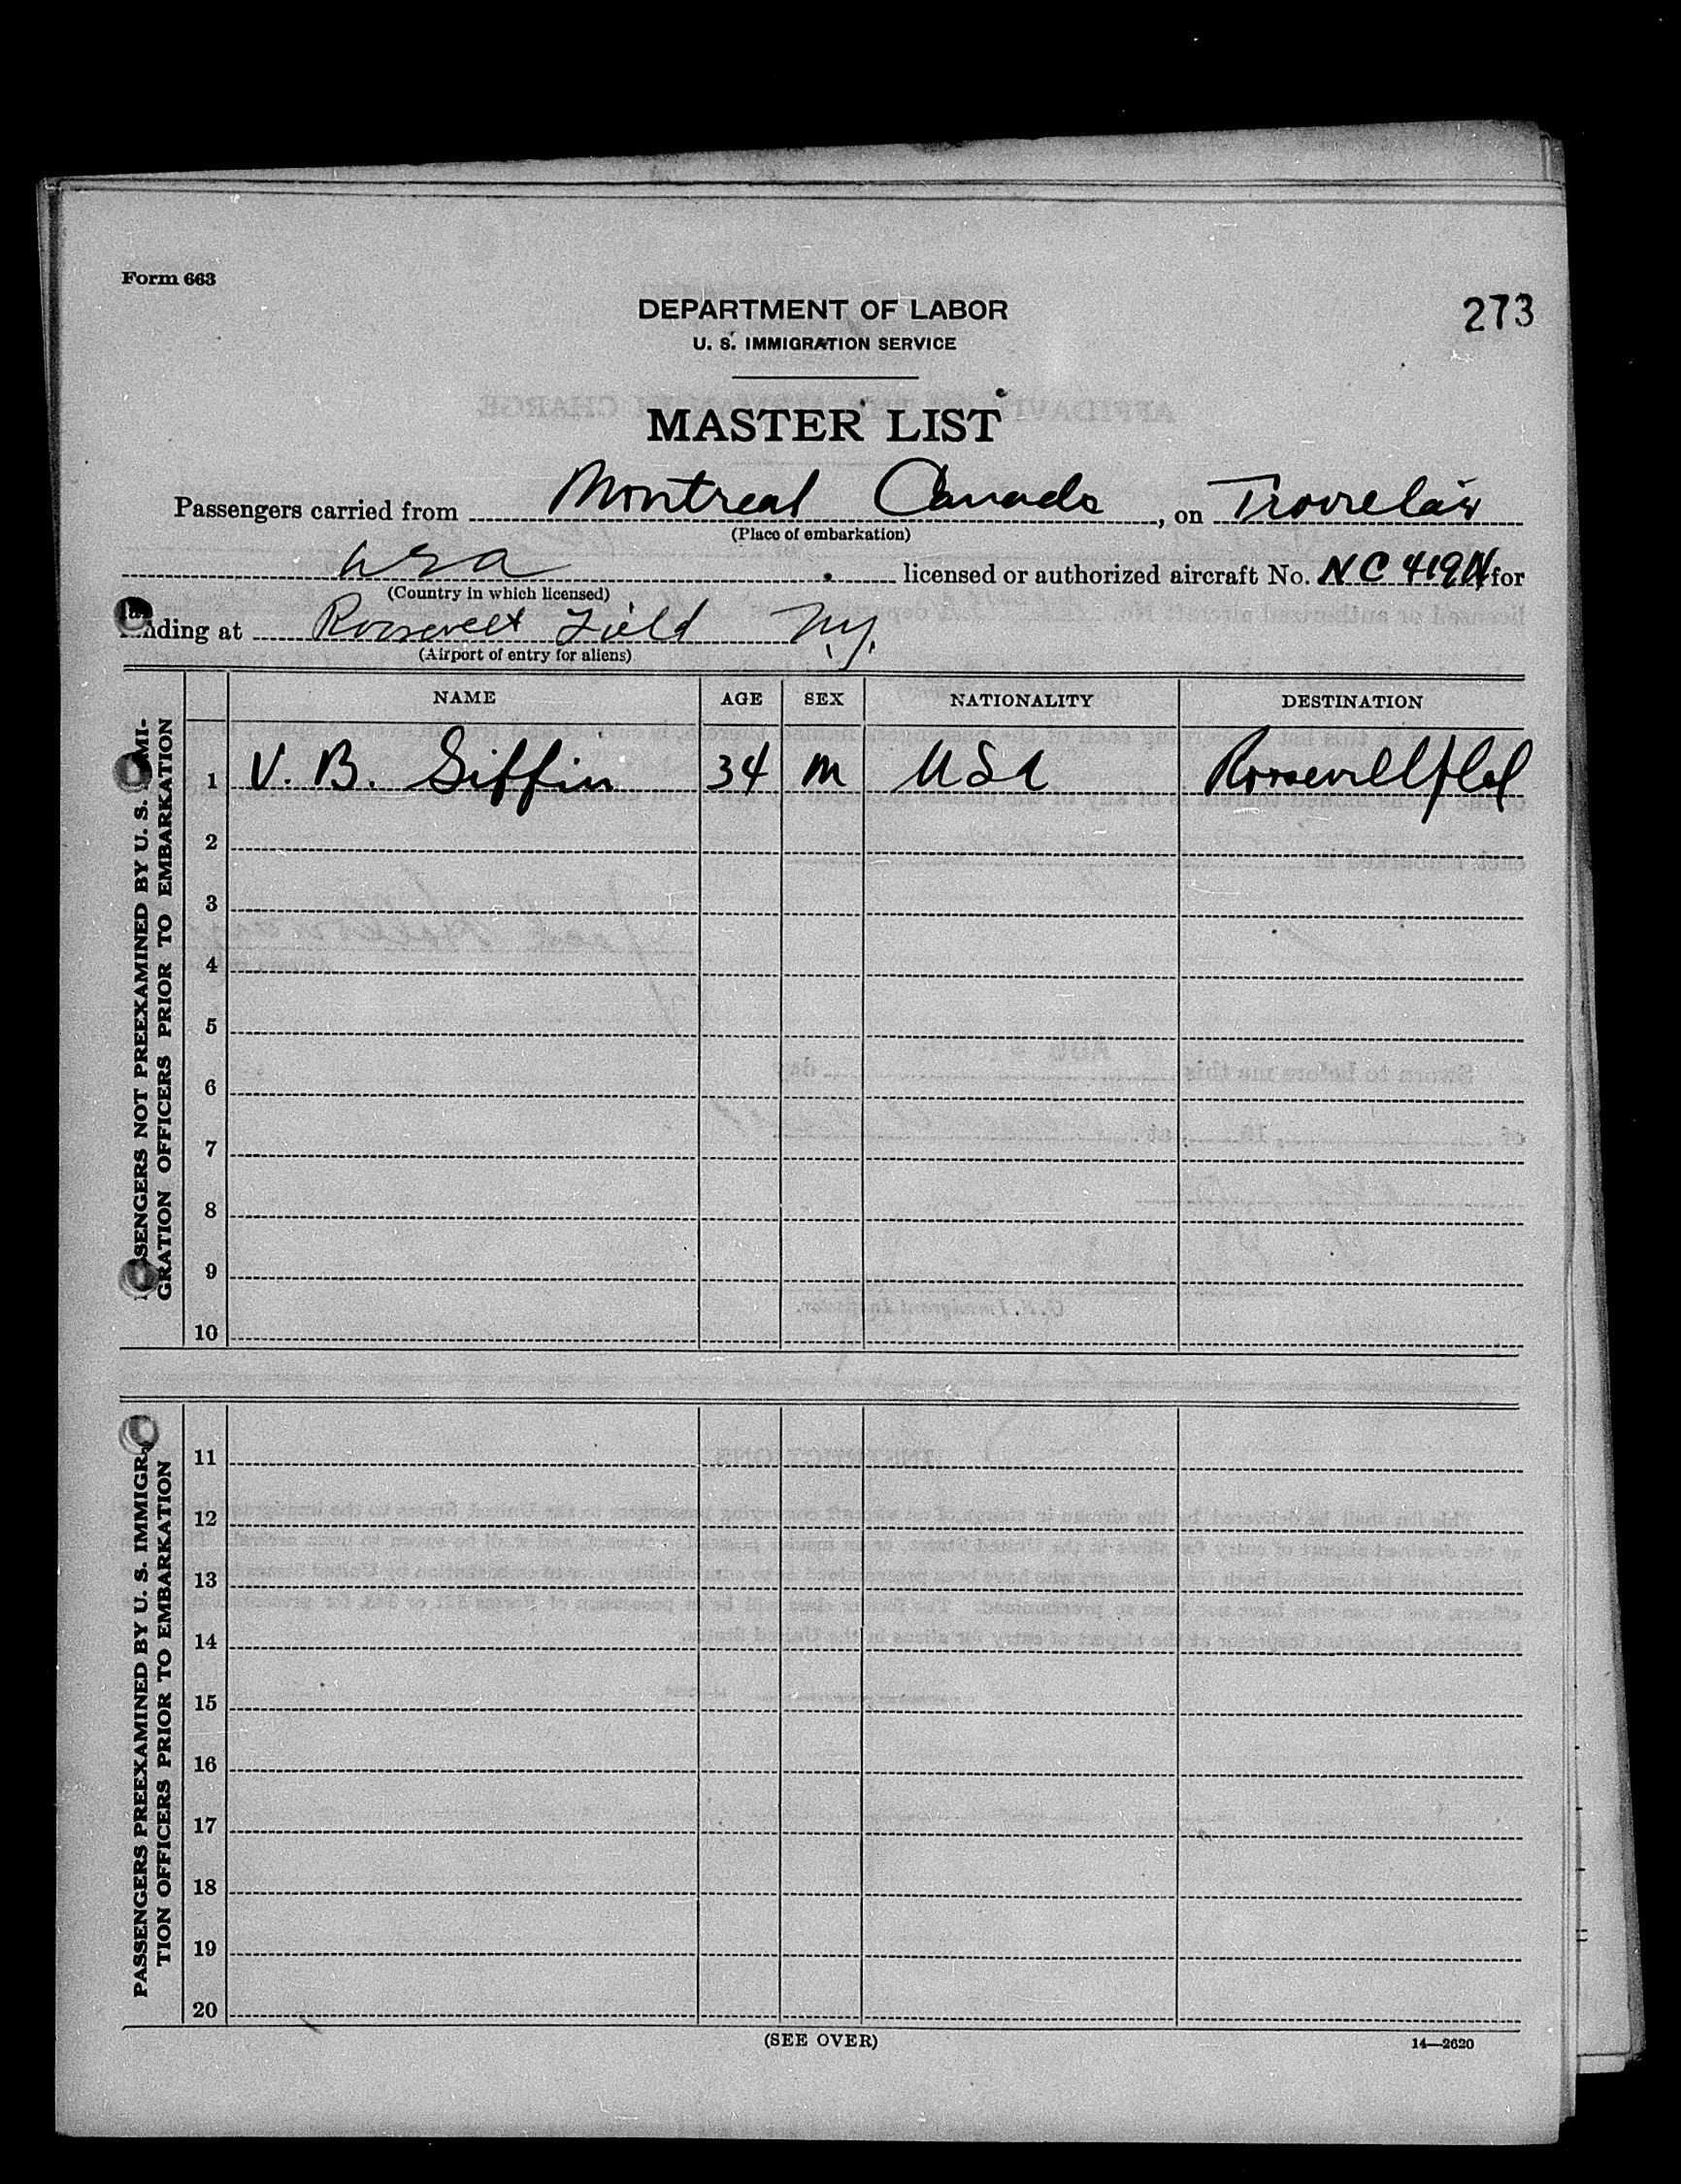 Form 663
273
DEPARTMENT OF LABOR
U. S. IMMIGRATION SERVICE
MASTER LIST
Passengers carried from Montreal Canada, on
(Place of embarkation)
USA licensed or authorized aircraft No. NC 419N for
(Country in which licensed)
landing at Roosevelt Field N.Y.
(Airport of entry for aliens)
NAME AGE SEX NATIONALITY DESTINATION
PASSENGERS NOT PREEXAMINED BY U. S. IMMI-
GRATION OFFICERS PRIOR TO EMBARKATION
1 V. B. 34 M USA
2
3
4
5
6
7
8
9
10
PASSENGERS PREEXAMINED BY U. S. IMMIGRA-
TION OFFICERS PRIOR TO EMBARKATION
11
12
13
14
15
16
17
18
19
20
(SEE OVER)
14—2620